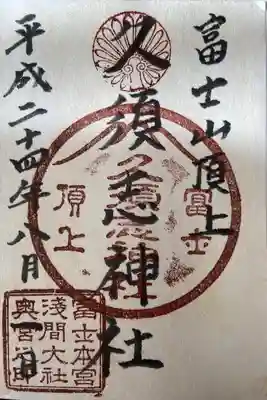 富士山頂上
久須志神社
平成二十四年八月一日
富士
頂上
富士本宮
淺間大社
奥宮之印